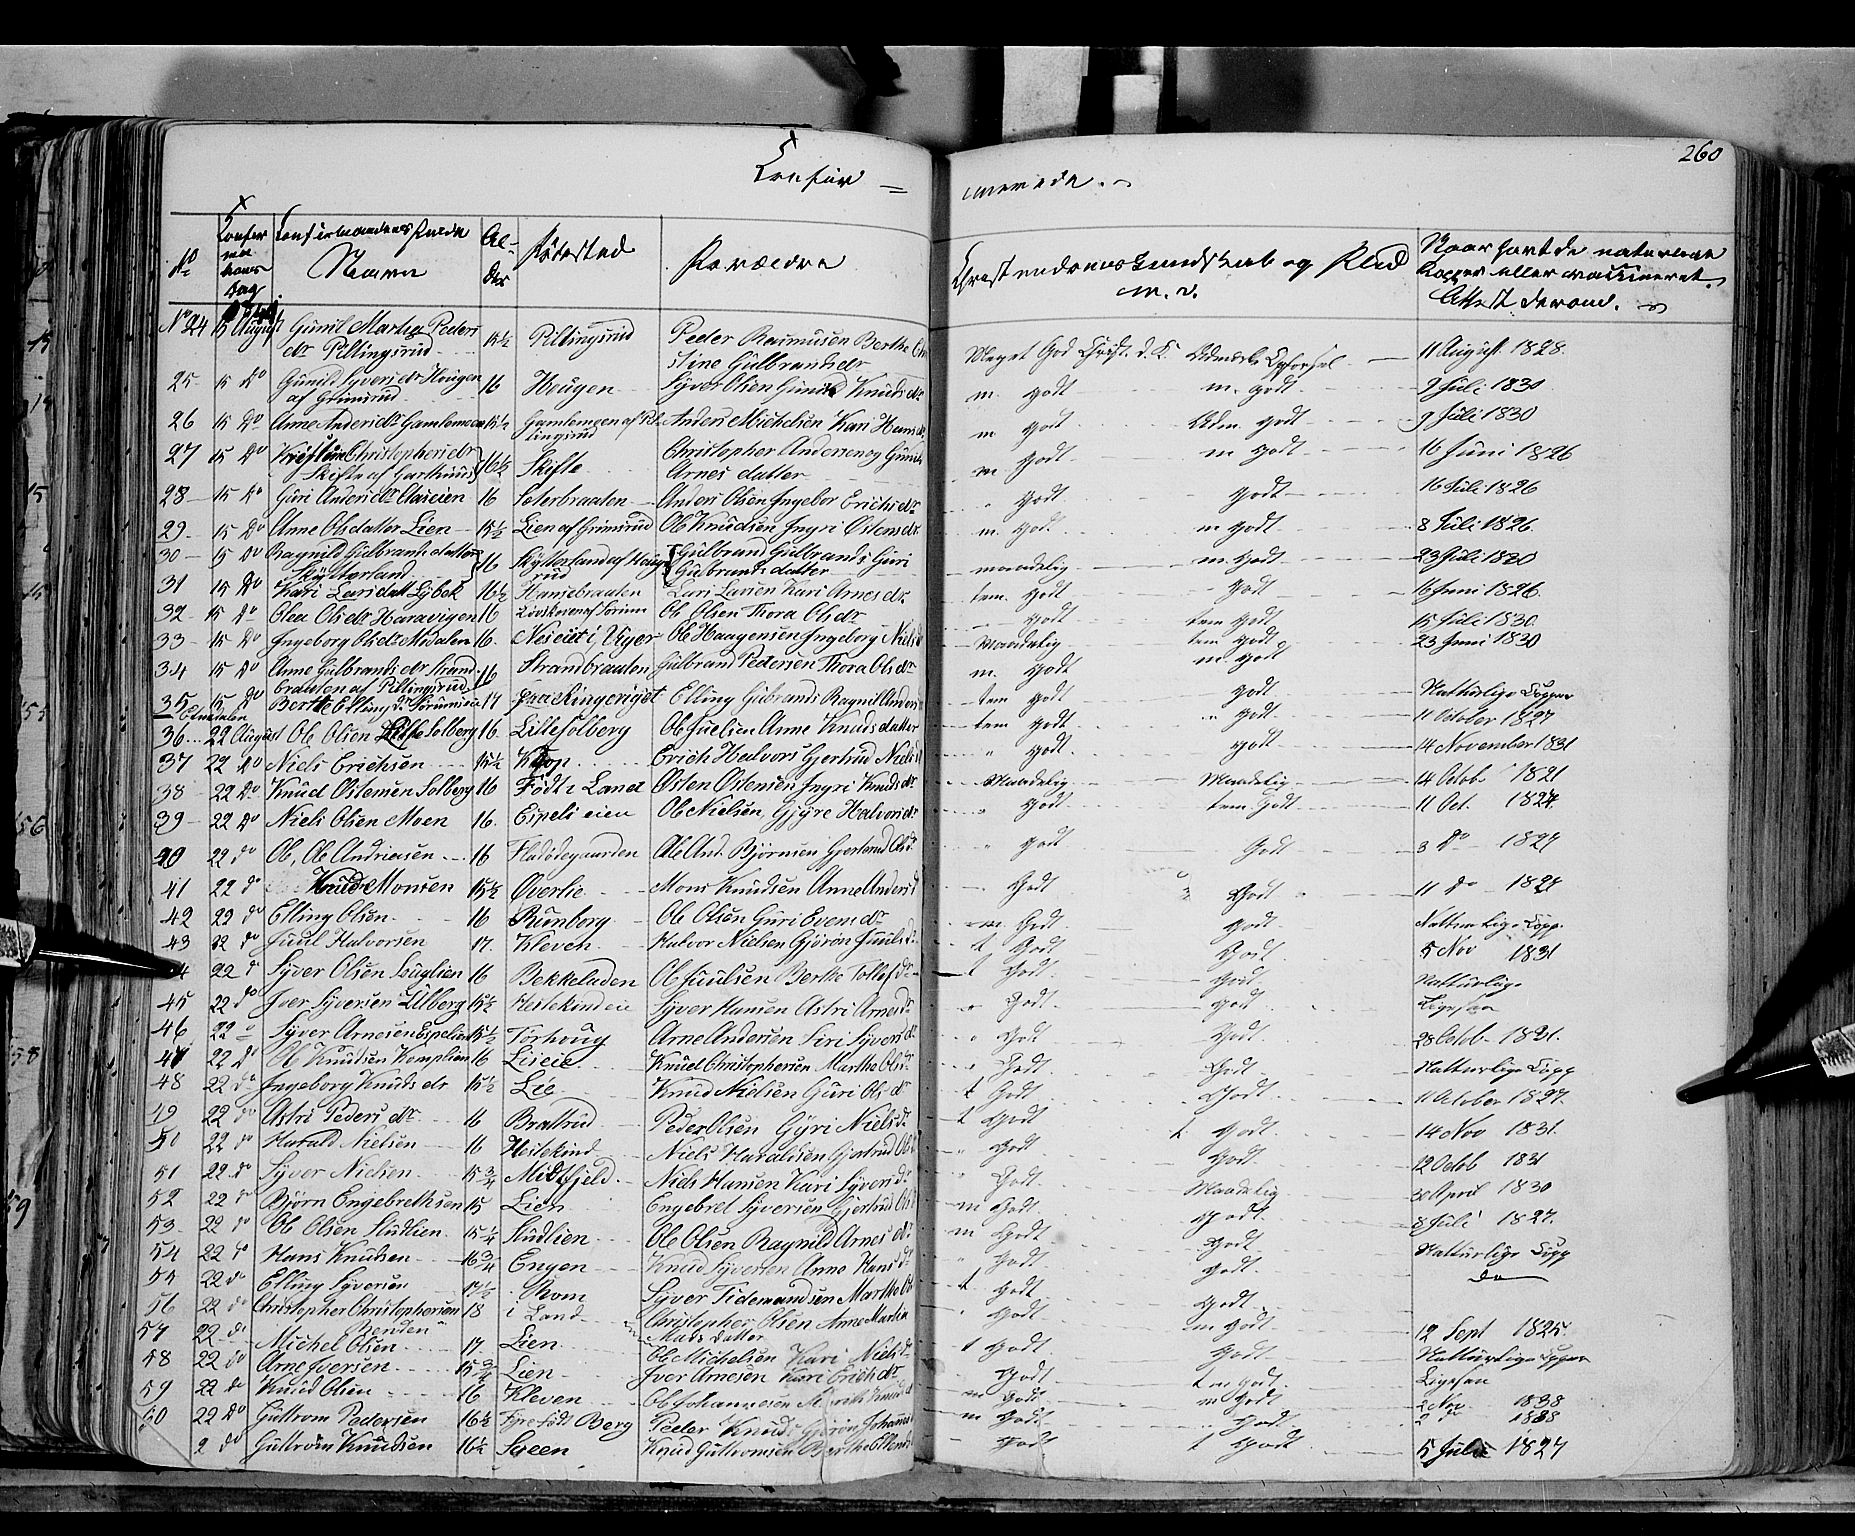 260
Confir = merede.
No
Confirmations Dag
Confirmandens fulde Navn
Alder
Födested
Forældre
Christendomskundskab og Flid m. v.
Naar havt de naturlige Kopper eller vaccineret. Attest derom.
No 24 15 August Gunil Marthe Peders dr Pillingsrud 15½ Pillingsrud Peder Rasmusen Berthe Christine Gulbrandsdr Meget God Christ. d. K. Udmærk. Opförsel 11 August 1828.
25 15 Do Gunild Syversdr Hougen af Grimsrud 16 Hougen Syver Olsen Gunild Knudsdr m. godt m. godt 9 Juli 1830
26 15 Do Anne Andersdr Gamlemoen 15½ Gamlemoen af Pillingsrud Anders Michelsen Kari Hansdr m godt Udm. godt 9 Juli 1830
27 15 Do Christophersdr Skifte af Garthus 16½ Skifte Christopher Andersen og Gunild Arnesdatter m godt m godt 16 Juni 1826
28 15 Do Guri Andersdr 16 Seterbraaten Anders Olsen Ingebor Erichsdr " godt godt 16 Juli 1826
29 15 Do Anne Olsdatter Lien 15½ Lien af Grimsrud Ole Knudsen Ingri Östensdr m. god m godt 8 Juli 1826
30 15 Do Ragnild Gulbrandsdatter Skytterland 16 Skytterland af Hougsrud Gulbrand Gulbrands Guri Gulbrandsdatter maadelig m. godt 23 Juli 1830
31 15 Do Kari Larsdatt Lybek 16½ Hansebraaten Lars Larsen Kari Arnesdr tem. godt godt 16 Juni 1826
32 15 Do Olea Olsdr Haravigen 16 Ole Olsen Thora Olsdr tem godt 15 Juli 1830
33 15 Do Ingeborg Olsdr Modalen 16 Neseiet i Viger Ole Haagensen Ingeborg Niels Maadelig tem godt 23 Juni 1830
34 15 Do Anne Gulbrandsdr Strandbraaten af Pillingsrud 16 Strandbraaten Gulbrand Pedersen Thora Olsdr m. godt m. godt
35 15 Do Berthe Ellingsdr 17 fra Ringeriget Elling Gulbrands Ragnil Anders tem godt godt Natturlige Kopper
Etnedalen
36 22 August Ole Olsen Lille Solberg 16 Lille Solberg Ole Juelsen Anne Knudsdatter tem godt " godt 11 October 1827
37 22 Do Niels Erichsen 15½ Krop Erich Halvors Gjertrud Niels " godt godt 14 November 1831
38 22 Do Knud Ostensen Solberg 16 Födt i Land Osten Ostensen Ingri Knudsdr Maadelig Maadelig 14 Octob 1821
39 22 Do Niels Olsen Moen 16 Espelieien Ole Nielsen Gjyre Halvorsdr " godt tem Godt 11 Oct. 1827
40 22 do Ole Andreasen 16 Flatödegaarden Ole And. Bjørnsen Gjertrud Olsd " godt Godt 3 Do 1827
41 22 do Knud Monsen 15½ Överlie Mons Knudsen Anne Anders d Godt Godt 11 do 1828
42 22 do Elling Olsen 16 Rumborg Ole Olsen Guri Evensdr m Godt godt Natturlige Kopp
43 22 do Juul Halvorsen 17 Kleven Halvor Nielsen Gjöron Juulsd t Godt Godt 5 Nov 1831
44 22 d Syver Olsen Fuglien 16 Bekkeladen Ole Juulsen Berthe Tollefdr t Godt Godt Natturlige
45 22 do Iver Syversen Lilberg 15½ Hestekindeie Syver Hansen Astri Arnesdr " Godt godt Ligesaa
46 22 Syver Arnesen Espelien 15½ Törhoug Arne Andersen Siri Syversdr " Godt Godt 28 Octob 1831
47 22 Do Ole Knudsen Komplien 16 Lieeie Knud Christophersen Marthe Olsdr " Godt Godt Natturlige Kopp
48 22 Do Ingeborg Knudsdr 15½ Lie Knud Nielsen Guri Olsdr t Godt Godt 11 October 1827
49 22 do Astri Pedersdr 16 Bratrud Peder Olsen Gyri Nielsdr t Godt t. godt 14 Nov 1831
50 22 do Harald Nielsen 16 Hestekind Niels Haraldsen Gjertrud Ols " godt godt 12 Octob 1831
51 22 do Syver Nielsen 15¾ Midtfjeld Niels Hansen Kari Syversdr " Godt Maadelig 30 April 1830
52 22 do Björn Engebrethsen 15 Lien Engebret Syversen Gjertrud Ols m Godt Godt 8 Juli 1827
53 22 do Ole Olsen Studlien 15¼ Studlien Ole Olsen Ragnild Arnesdr m Godt Godt Natturlige Kopp
54 22 do Hans Knudsen 16¾ Engen Knud Syversen Anne Hansdr " Godt godt do
55 22 do Elling Syversen 17½ Rom Syver Tidemandsen Marthe Ols t. godt godt
56 22 do Christopher Christophersen Benden 18 i Land Christopher Olsen Anne Martha Madsdatter " godt m godt 12 Sept 1825
57 22 do Michel Olsen 17 Lien Ole Michelsen Kari Nielsdr t Godt Godt Natturlige Kopper
58 22 do Arne Iversen 15¾ Lien Iver Arnesen Kari Erichsdr Godt tem godt Ligesaa
59 22 do Knud Olsen 16 Kleven Ole Johannesen m Godt m godt 2 Nov 1838
60 22 Do Guttrom Pedersen 16½ Födt Berg Peder Knuds Gjöron Johannes m Godt Godt 2 do 1838
2 do Guttrom Knudsen 16½ Sveen Knud Guttromsen Berthe Ellens Godt t Godt 5 Juli 1827